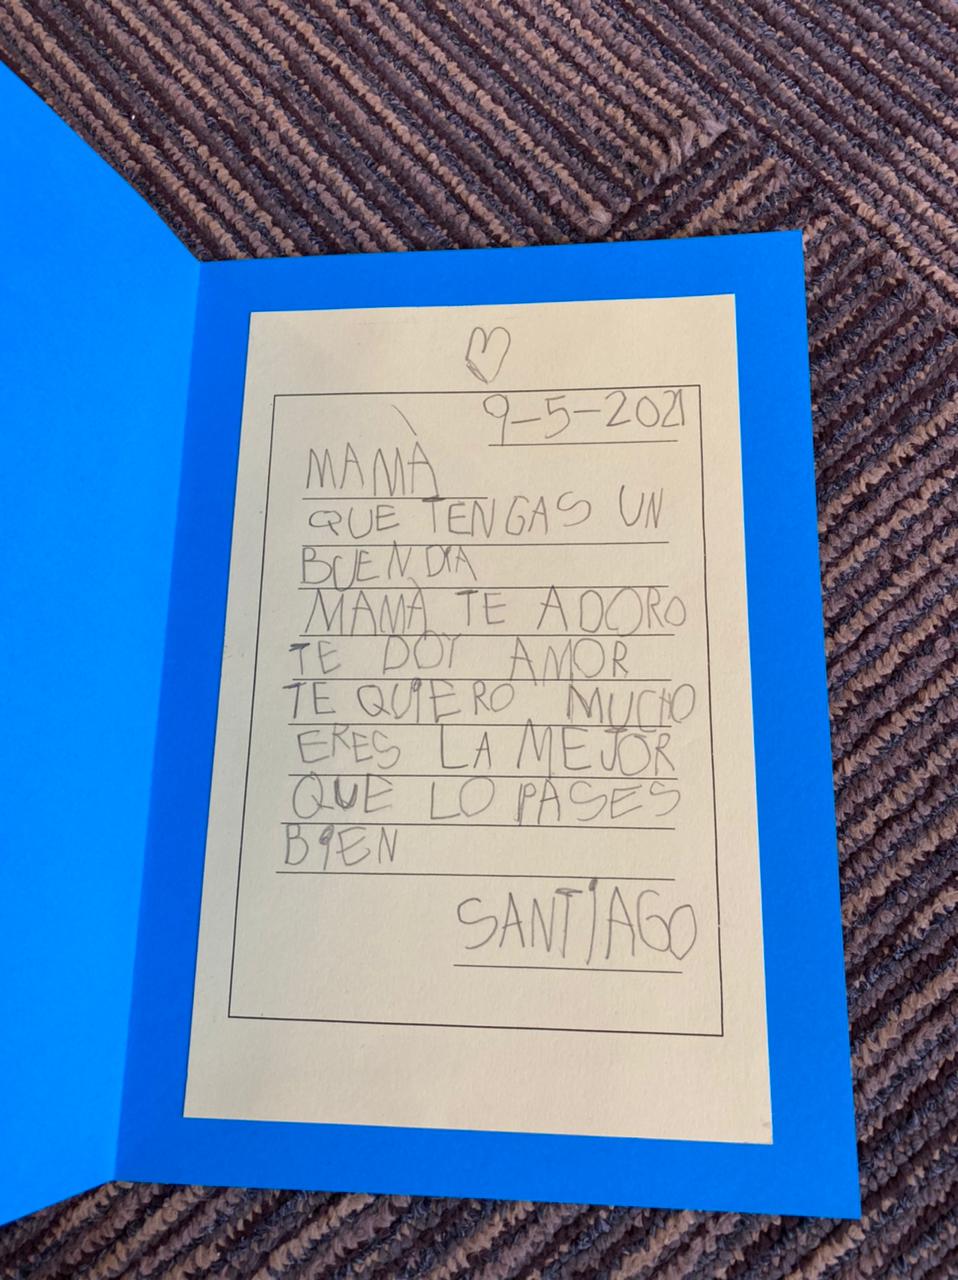 9-5-2021
MAMÀ
QUE TENGAS UN
BUEN DIA
MAMÀ TE ADORO
TE DOY AMOR
TE QUIERO MUCHO
ERES LA MEJOR
QUE LO PASES
BIEN
SANTIAGO